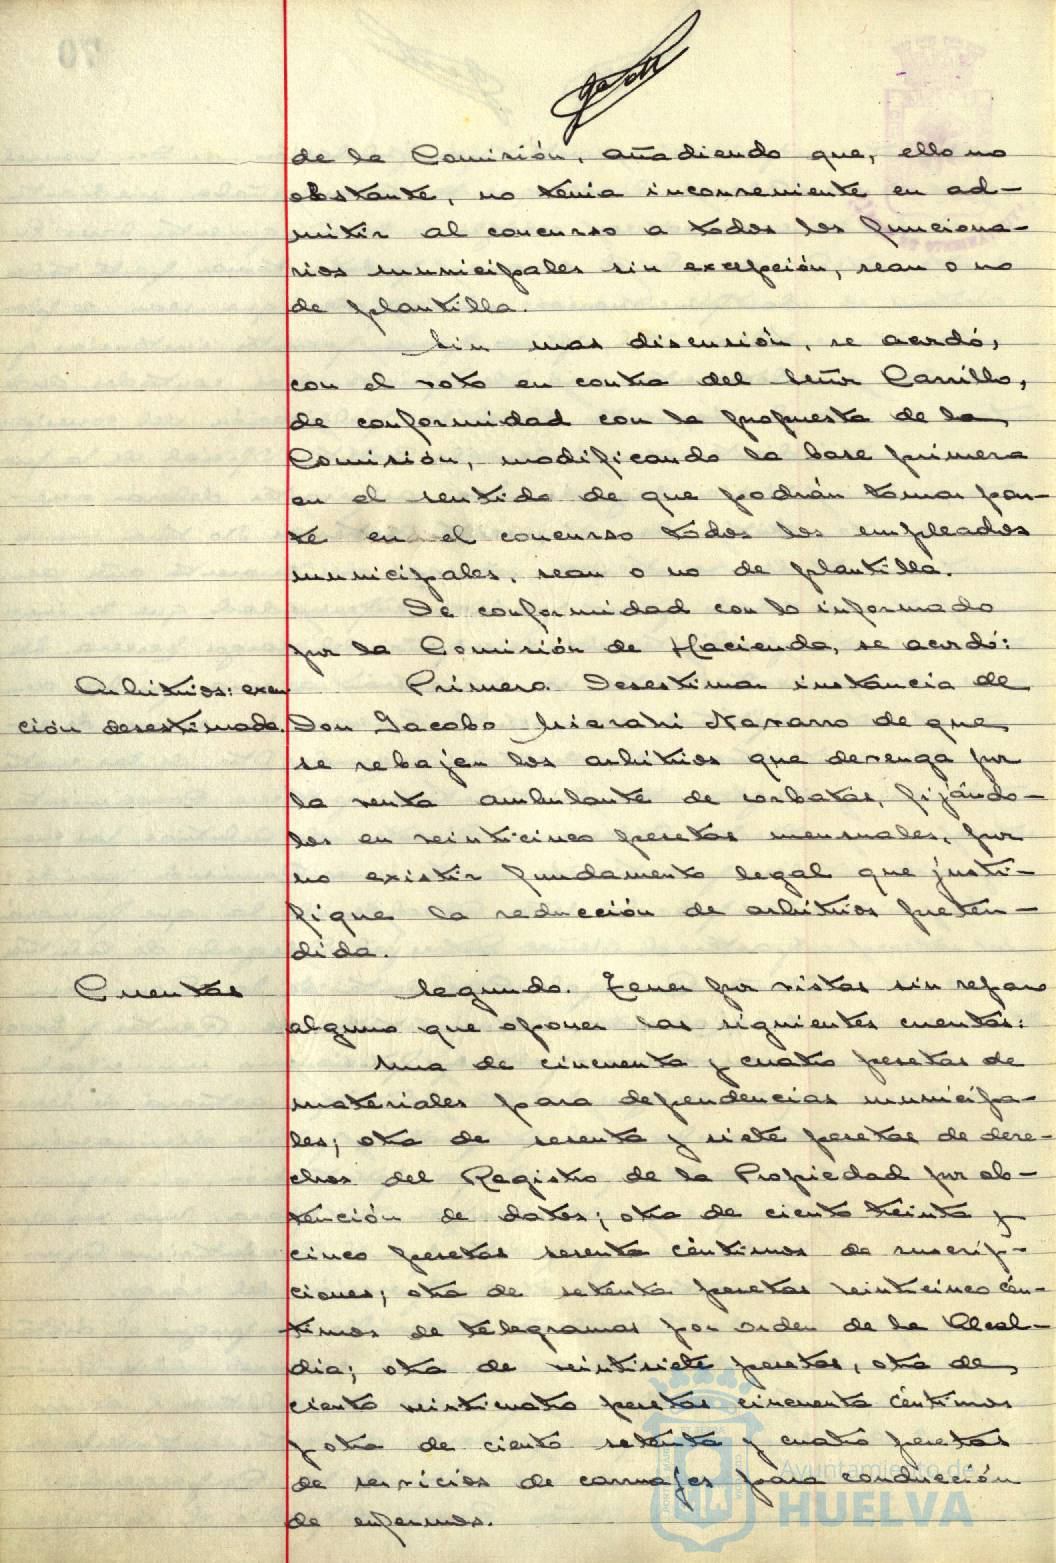 de la Comisión, añadiendo que, ello no
obstante, no tenia inconveniente en ad-
mitir al concurso a todos los funciona-
rios municipales sin excepción, sean o no
de plantilla.
Sin mas discusión, se acordó,
con el voto en contra del Señor Carrillo,
de conformidad con la propuesta de la
Comisión, modificando la base primera
en el sentido de que podrán tomar par-
te en el concurso todos los empleados
municipales, sean o no de plantilla.
De conformidad con lo informado
por la Comisión de Hacienda, se acordó:
Arbitrios: exen
ción desestimada.
Primero. Desestimar instancia de
Don Jacobo Navarro de que
se rebajen los arbitrios que devenga por
la venta ambulante de corbatas, fijándo-
los en veinticinco pesetas mensuales, por
no existir fundamento legal que justi-
fique la reducción de arbitrios preten-
dida.
Cuentas
Segundo. Tener por vistas sin reparo
alguno que oponer las siguientes cuentas:
Una de cincuenta y cuatro pesetas de
materiales para dependencias municipa-
les; otra de sesenta y siete pesetas de dere-
chos del Registro de la Propiedad por ob-
tención de datos; otra de ciento treinta y
cinco pesetas sesenta céntimos de suscrip-
ciones; otra de setenta pesetas veinticinco cén-
timos de telegramas por orden de la Alcal-
dia; otra de veintisiete pesetas, otra de
ciento veinticuatro pesetas cincuenta céntimos
y otra de ciento setenta y cuatro pesetas
de servicios de carruajes para conducción
de enfermos.
Ayuntamiento de
HUELVA